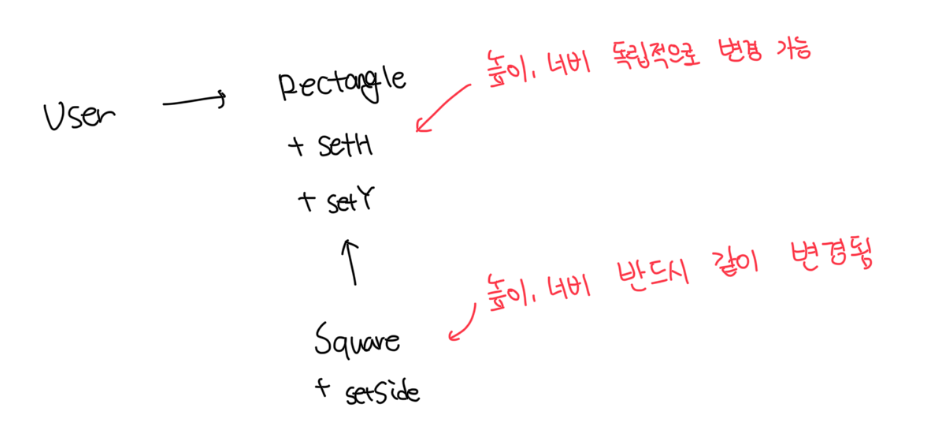 User
Rectangle
+ setH
+ setY
높이, 너비 독립적으로 변경 가능
Square
+ setSide
높이, 너비 반드시 같이 변경됨